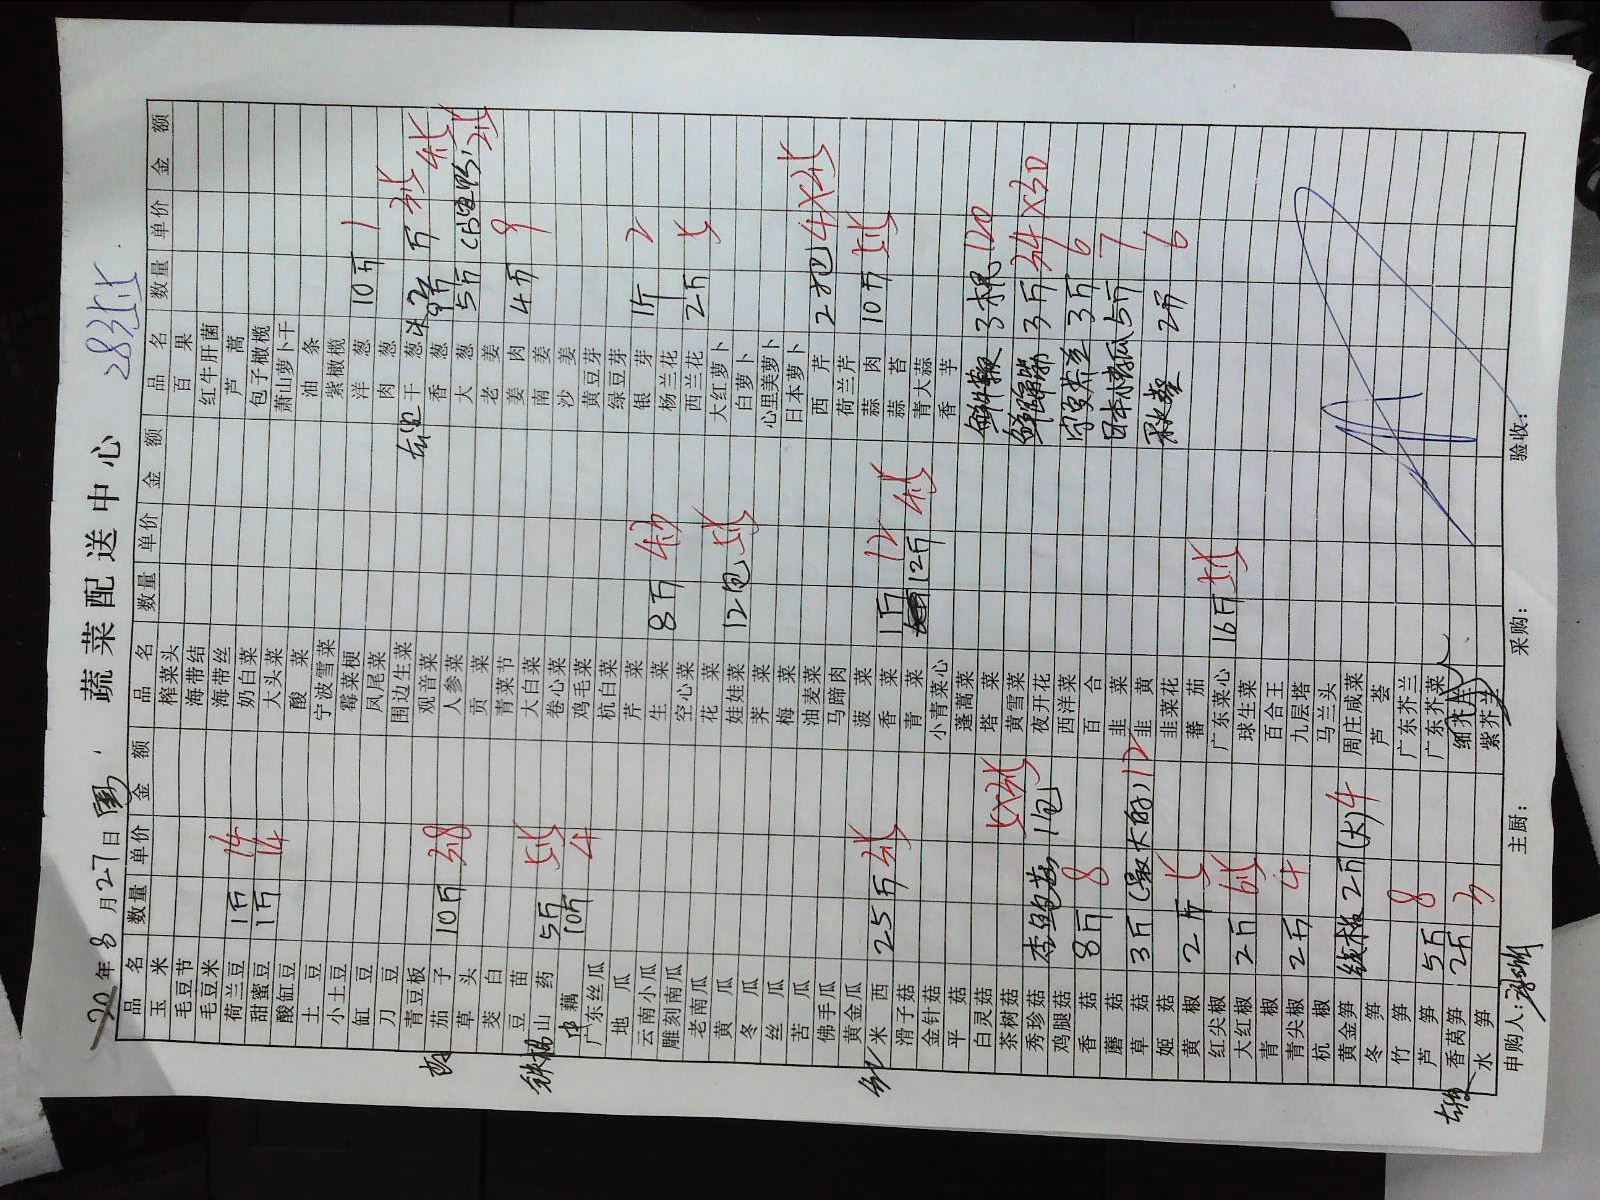 蔬菜配送中心
年8月27日
品名 数量 单价 金额 品名 数量 单价 金额 品名 数量 单价 金额
玉米 榨菜头 百果
毛豆节 海带结 红牛肝菌
毛豆米 海带丝 芦蒿
荷兰豆 1斤 14 奶白菜 包子橄榄
甜蜜豆 1斤 14 大头菜 萧山萝卜干
酸缸豆 酸菜 油条
土豆 宁波雪菜 紫橄榄
小土豆 霉菜梗 洋葱 10斤 1
缸豆 凤尾菜 肉葱
刀豆 围边生菜 干葱
青豆板 观音菜 香葱
茄子 10斤 人参菜 大葱 5斤
草头 贡菜 老姜
茭白 青菜节 姜肉 4斤 9
豆苗 大白菜 南姜
山药 5斤 卷心菜 沙姜
藕 10斤 4 鸡毛菜 黄豆芽
广东丝瓜 杭白菜 绿豆芽
地瓜 芹菜 银芽 1斤 2
云南小瓜 生菜 8斤 杨兰花
雕刻南瓜 空心菜 西兰花 2斤
老南瓜 花菜 大红萝卜
黄瓜 娃娃菜 12包 白萝卜
冬瓜 荠菜 心里美萝卜
丝瓜 梅菜 日本萝卜
苦瓜 油麦菜 西芹 2把
佛手瓜 马蹄肉 荷兰芹
黄金瓜 菠菜 蒜肉 10斤
米西 25斤 香菜 1斤 12 蒜苔
滑子菇 青菜 12斤 青大蒜
金针菇 小青菜心 香芋
平菇 蓬蒿菜
白灵菇 塔菜 3根 120
茶树菇 黄雪菜
秀珍菇 1包 夜开花 3斤 34×30
鸡腿菇 西洋菜
香菇 8斤 8 百合 3斤 6
蘑菇 韭菜 日本小青瓜 5斤 7
草菇 3斤(最大的) 12 韭黄
姬菇 韭菜花 秋葵 2斤 6
黄椒 2斤 蕃茄
红尖椒 广东菜心 16斤
大红椒 2斤 球生菜
青椒 百合王
青尖椒 2斤 4 九层塔
杭椒 马兰头
黄金笋 2斤(大) 4 周庄咸菜
冬笋 芦荟
竹笋 广东芥兰
芦笋 5斤 8 广东芥菜
香莴笋 2斤 3 细芥兰
水笋 紫芥兰
申购人: 主厨: 采购: 验收: